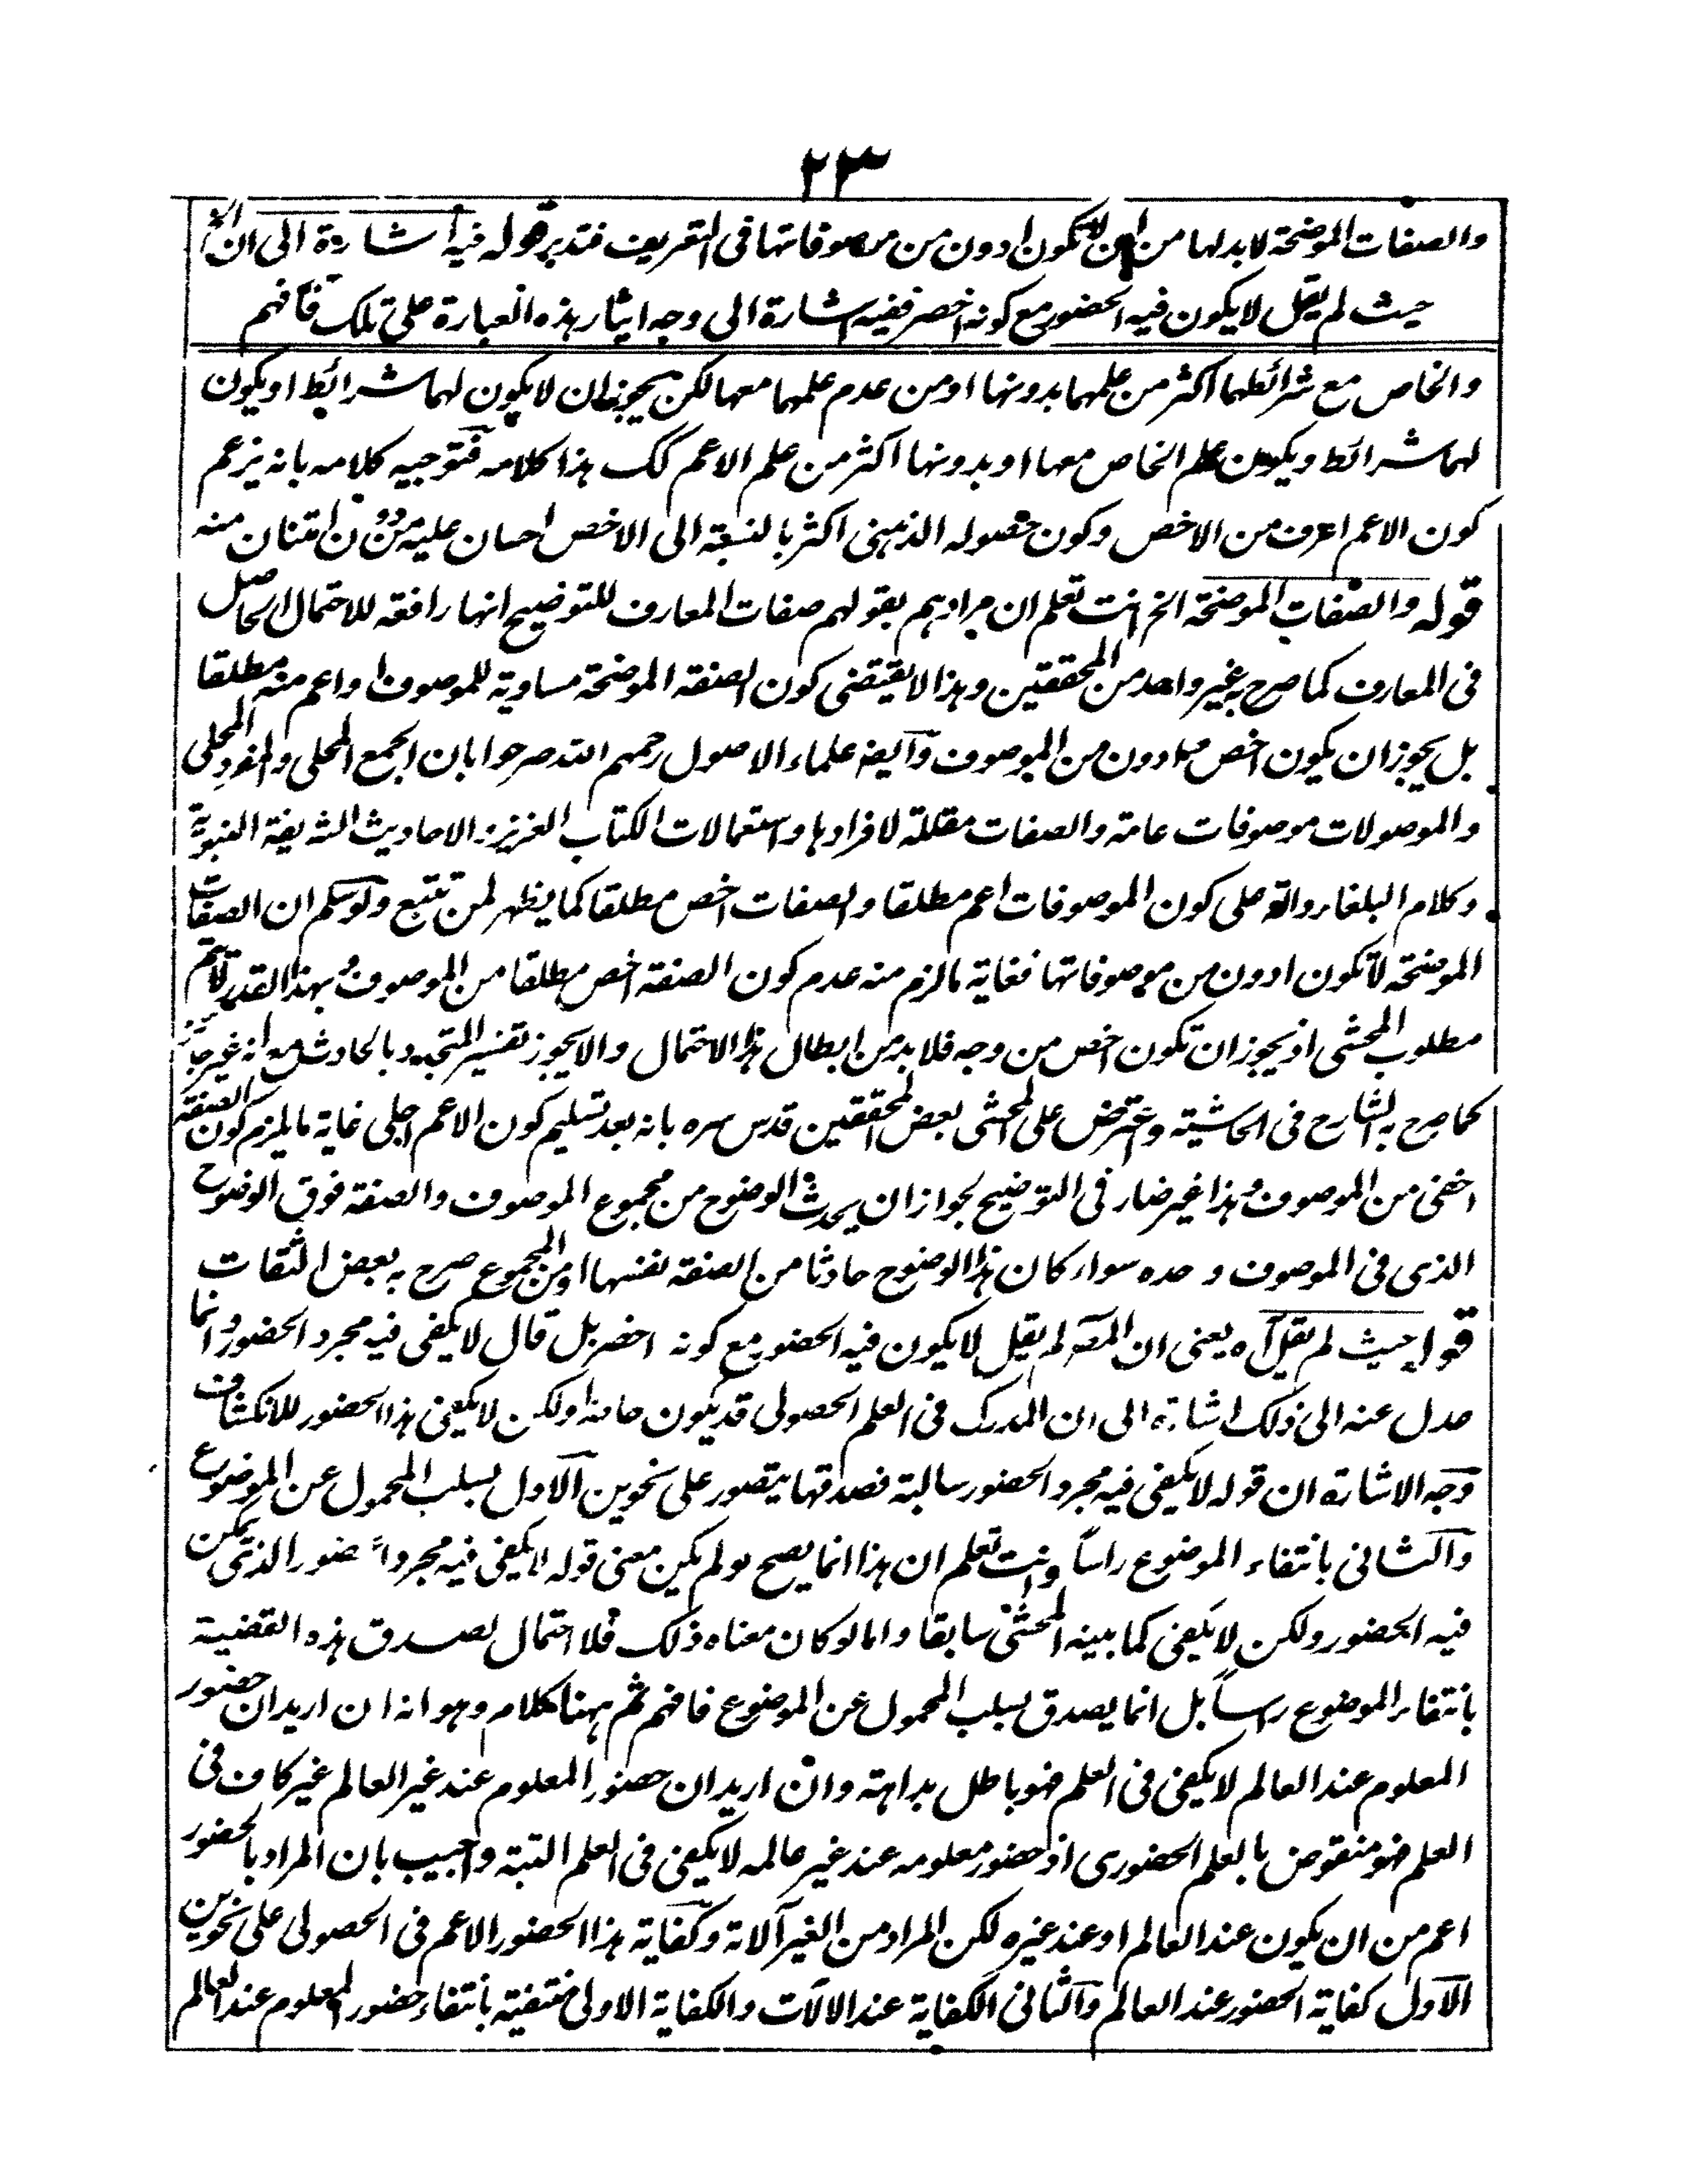 ٢٣
والصفات الموضحة لا بد لها من ان لا تكون ادون من موصوفاتها فى التعريف فتدبر قوله فيه اشارة الى ان الخ
حيث لم يقل لا يكون فيه الحضور مع كونه اخصر ففيه اشارة الى وجه ايثار هذه العبارة على تلك فافهم
والخاص مع شرائطهما اكثر من علمهما بدونها او من عدم علمهما معها لكن يجوز ان لا يكون لهما شرائط او يكون
لهما شرائط ويكون علم الخاص معها او بدونها اكثر من علم الاعم كك هذا كلامه فتوجيه كلامه بانه يزعم
كون الاعم اعرف من الاخص وكون حصوله الذهنى اكثر بالنسبة الى الاخص احسان عليه من دون امتنان منه
قوله والصفات الموضحة الخ انت تعلم ان مرادهم بقولهم صفات المعارف للتوضيح انها رافعة للاحتمال الحاصل
فى المعارف كما صرح به غير واحد من المحققين وهذا لا يقتضى كون الصفة الموضحة مساوية للموصوف او اعم منه مطلقا
بل يجوز ان يكون اخص منه ادون من الموصوف وآيضا علماء الاصول رحمهم الله صرحوا بان الجمع المحلى والمفرد المحلى
والموصولات موصوفات عامة والصفات مقللة لافرادها واستعمالات الكتاب العزيز والاحاديث الشريفة النبوية
وكلام البلغاء دالة على كون الموصوفات اعم مطلقا والصفات اخص مطلقا كما يظهر لمن تتبع ولو سلم ان الصفات
الموضحة لا تكون ادون من موصوفاتها فغاية ما لزم منه عدم كون الصفة اخص مطلقا من الموصوف وبهذا القدر لا يتم
مطلوب المحشى اذ يجوز ان تكون اخص من وجه فلا بد من ابطال هذا الاحتمال والا يجوز تفسير المتجدد بالحادث مع انه غير جائز
كما صرح به الشارح فى الحاشية واعترض على المحشى بعض المحققين قدس سره بانه بعد تسليم كون الاعم اجلى غاية ما يلزم كون الصفة
اخفى من الموصوف وهذا غير ضار فى التوضيح لجواز ان يحدث الوضوح من مجموع الموصوف والصفة فوق الوضوح
الذى فى الموصوف وحده سواء كان هذا الوضوح حادثا من الصفة نفسها او من المجموع صرح به بعض الثقات
قوله حيث لم يقل آه يعنى ان المصـ لم يقل لا يكون فيه الحضور مع كونه اخصر بل قال لا يكفى فيه مجرد الحضور وانما
عدل عنه الى ذلك اشارة الى ان المدرك فى العلم الحصولى قد يكون حاضرا ولكن لا يكفى هذا الحضور للانكشاف
وجه الاشارة ان قوله لا يكفى فيه مجرد الحضور سالبة فصدقها يتصور على نحوين الاول بسلب المحمول عن الموضوع
والثانى بانتفاء الموضوع راسا وانت تعلم ان هذا انما يصح لو لم يكن معنى قوله لا يكفى فيه مجرد الحضور الذى يمكن
فيه الحضور ولكن لا يكفى كما بينه المحشى سابقا واما لو كان معناه ذلك فلا احتمال لصدق هذه القضية
بانتفاء الموضوع راسا بل انما يصدق بسلب المحمول عن الموضوع فافهم ثم ههنا كلام وهو انه ان اريد ان حضور
المعلوم عند العالم لا يكفى فى العلم فهو باطل بداهة وان اريد ان حضور المعلوم عند غير العالم غير كاف فى
العلم فهو منقوض بالعلم الحضورى اذ حضور معلومه عند غير عالمه لا يكفى فى العلم البتة واجيب بان المراد بالحضور
اعم من ان يكون عند العالم او عند غيره لكن المراد من الغير آلاته وكفاية هذا الحضور الاعم فى الحصولى على نحوين
الاول كفاية الحضور عند العالم والثانى الكفاية عند الالات والكفاية الاولى منتفية بانتفاء حضور المعلوم عند العالم